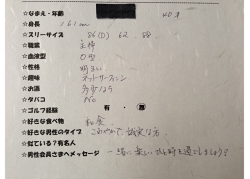 ☆なまえ・年齢 40才
☆身長 161cm
☆スリーサイズ 86(D) 62 88
☆職業 主婦
☆血液型 O型
☆性格 明るい
☆趣味 ネットサーフィン
☆お酒 多少
☆タバコ No
☆ゴルフ経験 有・無
☆好きな食べ物 和食
☆好きな男性のタイプ 誠実な方
☆似ている?有名人
☆男性会員さまへメッセージ
一緒に楽しいひと時を過ごしましょう?